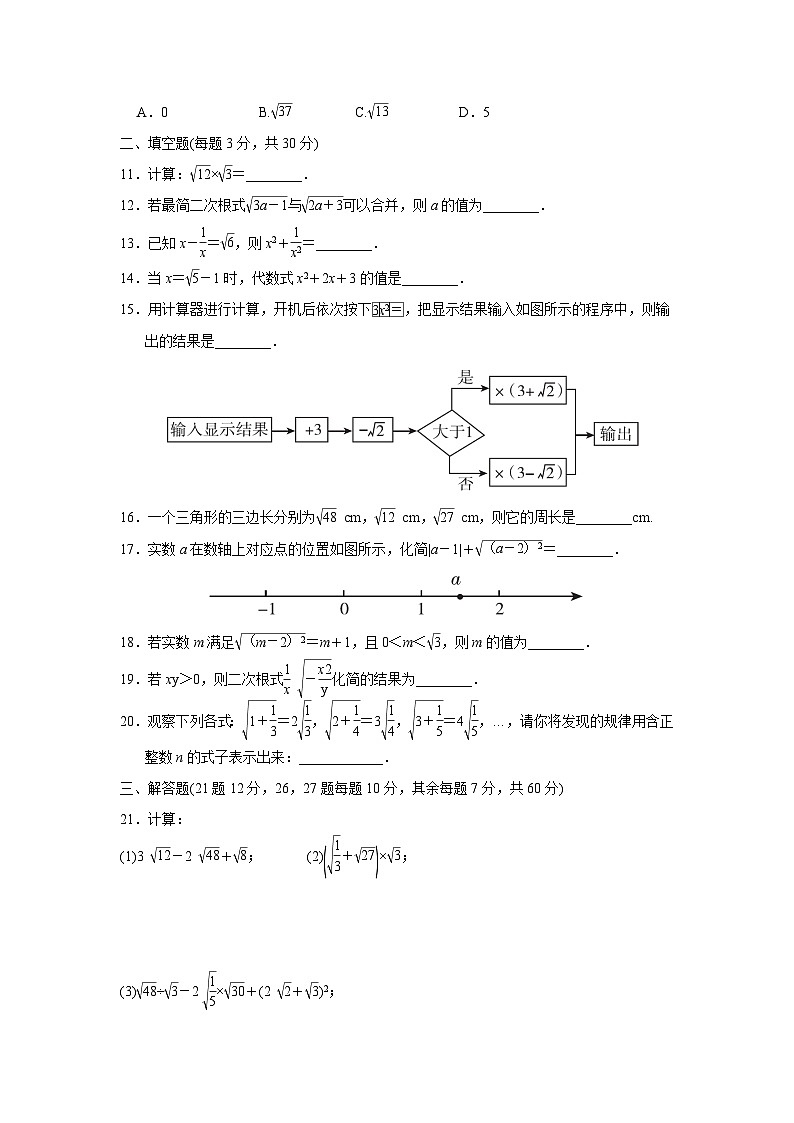 A．0 B.√37 C.√13 D．5
二、填空题(每题3分，共30分)
11．计算：√12×√3＝________．
12．若最简二次根式√(3a－1)与√(2a＋3)可以合并，则a的值为________．
13．已知x－1/x＝√6，则x²＋1/x²＝________．
14．当x＝√5－1时，代数式x²＋2x＋3的值是________．
15．用计算器进行计算，开机后依次按下3x²=，把显示结果输入如图所示的程序中，则输
出的结果是________．
是 ×(3+√2)
输入显示结果 +3 −√2 大于1 输出
否 ×(3−√2)
16．一个三角形的三边长分别为√48 cm，√12 cm，√27 cm，则它的周长是________cm.
17．实数a在数轴上对应点的位置如图所示，化简|a－1|＋√(a－2)²＝________．
a
−1 0 1 2
18．若实数m满足√(m－2)²＝m＋1，且0＜m＜√3，则m的值为________．
19．若xy＞0，则二次根式1/x √(－x2/y)化简的结果为________．
20．观察下列各式：√(1＋1/3)＝2√(1/3)，√(2＋1/4)＝3√(1/4)，√(3＋1/5)＝4√(1/5)，…，请你将发现的规律用含正
整数n的式子表示出来：____________．
三、解答题(21题12分，26，27题每题10分，其余每题7分，共60分)
21．计算：
(1)3 √12－2 √48＋√8； (2)(√(1/3)＋√27)×√3；
(3)√48÷√3－2 √(1/5)×√30＋(2 √2＋√3)²；